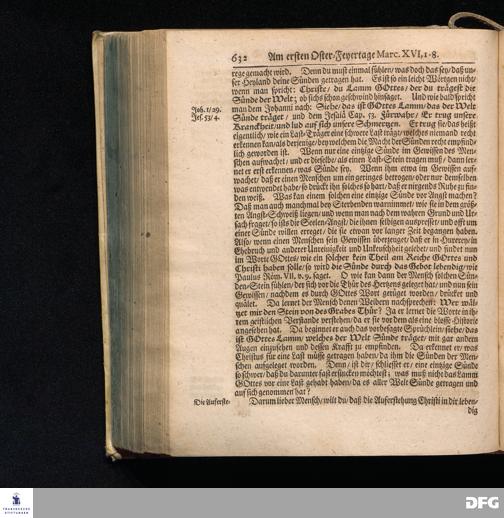 632 Am ersten Oster-Feyertage Marc. XVI, 1-8.
rege gemacht wird. Denn du must einmal fühlen/ was doch das sey/ daß un-
ser Heyland deine Sünden getragen hat. Es ist so ein leicht Wörtgen nicht/
wenn man spricht: Christe/ du Lamm GOttes/ der du trägest die
Sünde der Welt; ob sichs schon geschwind hinsaget. Und wie bald spricht
Joh. 1/29. man dem Johanni nach: Siehe/ das ist GOttes Lamm/ das der Welt
Jes. 53/4. Sünde träget/ und dem Jesaiä Cap. 53. Fürwahr/ Er trug unsere
Kranckheit/ und lud auf sich unsere Schmertzen. Er trug sie/ das heißt
eigentlich/ wie ein Last-Träger eine schwere Last trägt/ welches niemand recht
erkennen kan/ als derjenige/ bey welchem die Macht der Sünden recht empfind-
lich geworden ist. Wenn nur eine eintzige Sünde im Gewissen des Men-
schen aufwachet/ und er dieselbe/ als einen Last-Stein tragen muß/ dann ler-
net er erst erkennen/ was Sünde sey. Wenn ihm etwa im Gewissen auff-
wachet/ daß er einen Menschen um ein geringes betrogen/ oder nur demselben
was entwendet habe/ so drückt ihn solches so hart/ daß er nirgends Ruhe zu fin-
den weiß. Was kan einem solchen eine eintzige Sünde vor Angst machen?
Daß man auch manchmal bey Sterbenden warnimmet/ wie sie in dem grös-
ten Angst-Schweiß liegen/ und wenn man nach dem wahren Grund und Ur-
sach fraget/ so ists die Seelen-Angst/ die ihnen selbigen auspresset/ und offt um
einer Sünde willen erreget/ die sie etwan vor langer Zeit begangen haben.
Also/ wenn einen Menschen sein Gewissen überzeuget/ daß er in Hurerey/ in
Ehebruch und anderer Unreinigkeit und Unkeuschheit gelebet/ und findet nun
im Worte GOttes/ wie ein solcher kein Theil am Reiche GOttes und
Christi haben solle/ so wird die Sünde durch das Gebot lebendig/ wie
Paulus Röm. VII, v. 9. saget. O wie kan dann der Mensch solchen Sün-
den-Stein fühlen/ der sich vor die Thür des Hertzens geleget hat/ und nun sein
Gewissen/ nachdem es durch GOttes Wort gerüget worden/ drücket und
quälet. Da lernet der Mensch denen Weibern nachsprechen: Wer wäl-
tzet mir den Stein von des Grabes Thür? Ja er lernet die Worte in ih-
rem geistlichen Verstande verstehen/ da er sie vor dem als eine blosse Historie
angesehen hat. Da beginnet er auch das vorbesagte Sprüchlein: siehe/ das
ist GOttes Lamm/ welches der Welt Sünde träget/ mit gar andern
Augen einzusehen und dessen Krafft zu empfinden. Da erkennet er/ was
Christus für eine Last müsse getragen haben/ da ihm die Sünden der Men-
schen aufgeleget worden. Denn/ ist dir/ schliesset er/ eine eintzige Sünde
so schwer/ daß du darunter fast ersincken möchtest; was muß nicht das Lamm
GOttes vor eine Last gehabt haben/ da es aller Welt Sünde getragen und
auf sich genommen hat?
Die Auferste- Darum lieber Mensch/ wilt du/ daß die Auferstehung Christi in dir leben-
dig
FRANCKESCHE
STIFTUNGEN
DFG